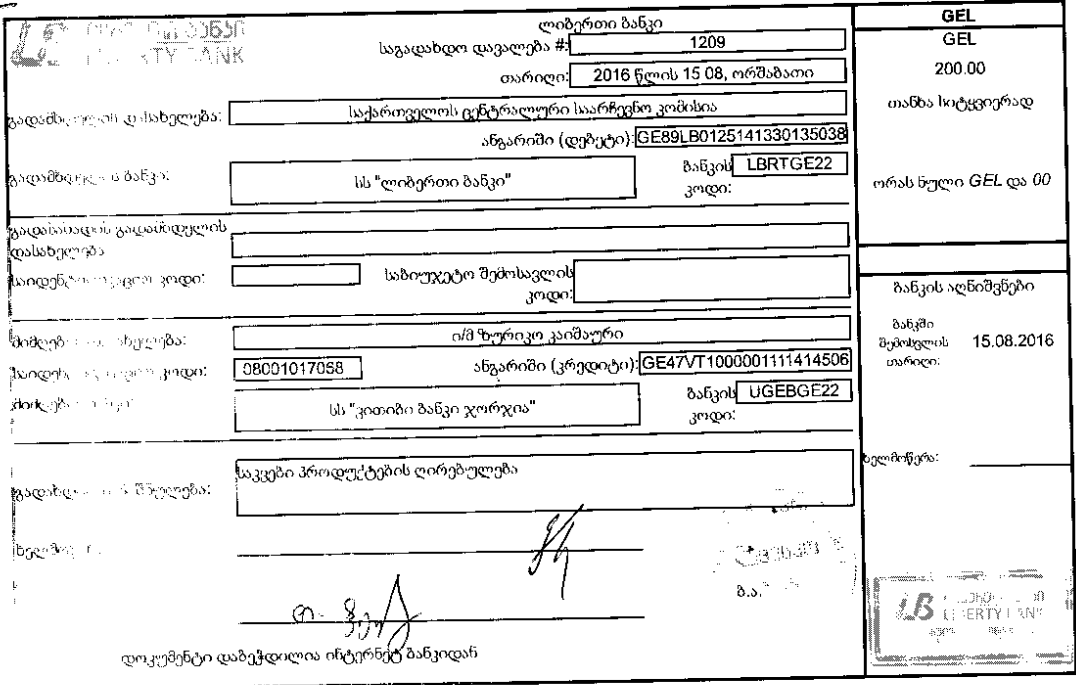 ლიბერთი ბანკი
LIBERTY BANK
საგადახდო დავალება #: 1209
თარიღი: 2016 წლის 15 08, ორშაბათი
გადამხდელის დასახელება: საქართველოს ცენტრალური საარჩევნო კომისია
ანგარიში (დებეტი): GE89LB0125141330135038
გადამხდელის ბანკი: სს "ლიბერთი ბანკი"
ბანკის კოდი: LBRTGE22
გადასახადის გადამხდელის
დასახელება
საიდენტიფიკაციო კოდი:
საბიუჯეტო შემოსავლის
კოდი:
მიმღების დასახელება: ი/მ ზურიკო კაიშაური
საიდენტიფიკაციო კოდი: 08001017058
ანგარიში (კრედიტი): GE47VT1000001111414506
მიმღების ბანკი: სს "ვითიბი ბანკი ჯორჯია"
ბანკის კოდი: UGEBGE22
საკვები პროდუქტების ღირებულება
გადახდის დანიშნულება:
ხელმოწერა
ბ.ა.
დოკუმენტი დაბეჭდილია ინტერნეტ ბანკიდან
GEL
GEL
200.00
თანხა სიტყვიერად
ორას ნული GEL და 00
ბანკის აღნიშვნები
ბანკში
შემოსვლის
თარიღი:
15.08.2016
ხელმოწერა:
LIBERTY BANK